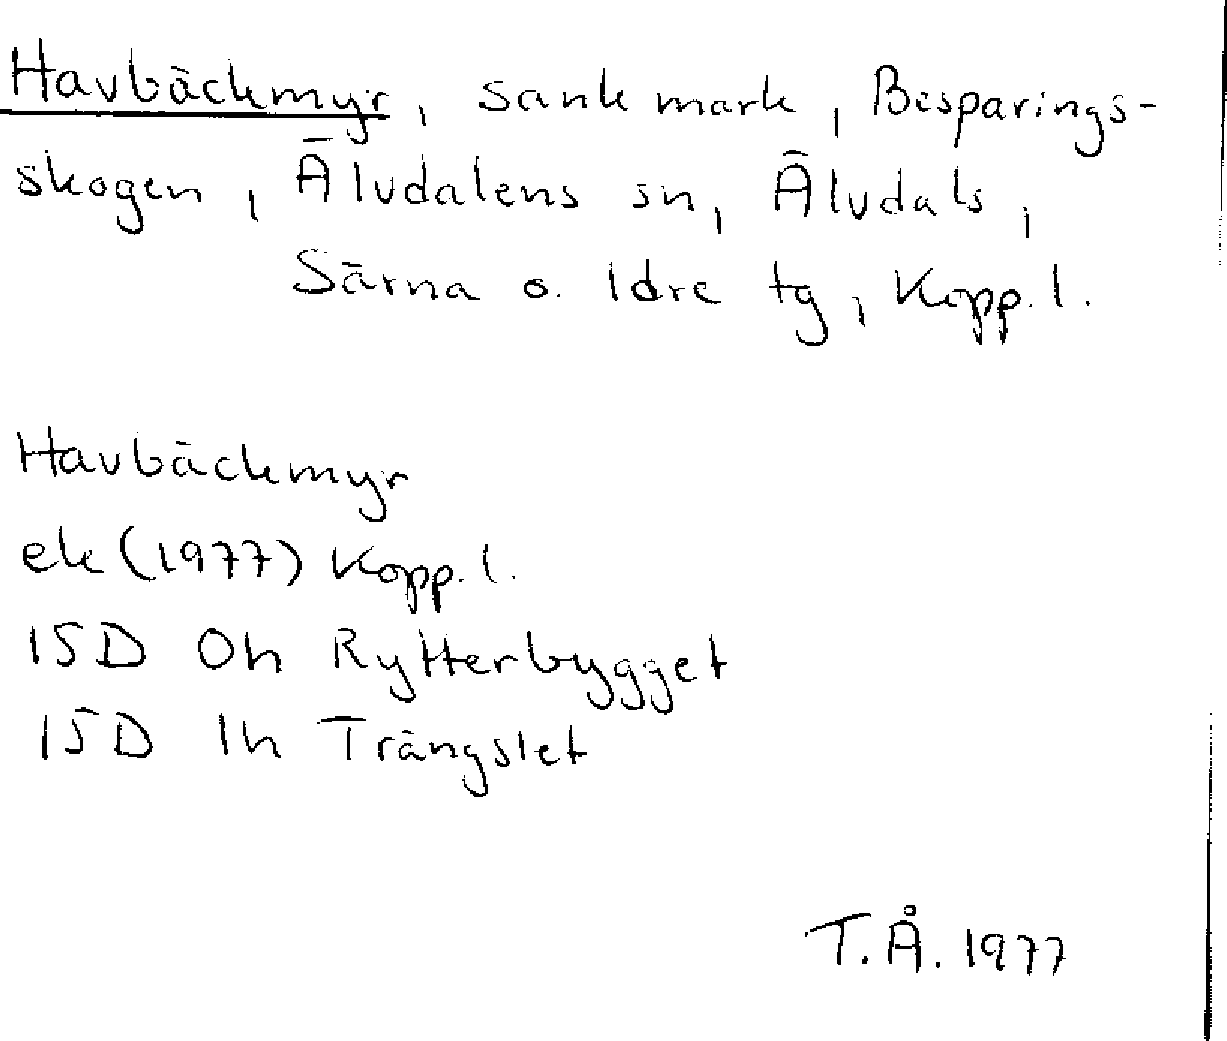 Havbäckmyr, sank mark, Besparings-
skogen, Älvdalens sn, Älvdals,
Särna o. Idre tg, Kopp. l.
Havbäckmyr
ek (1977) Kopp. l.
15D 0h Rytterbygget
15D 1h Trängslet
T.Å. 1977